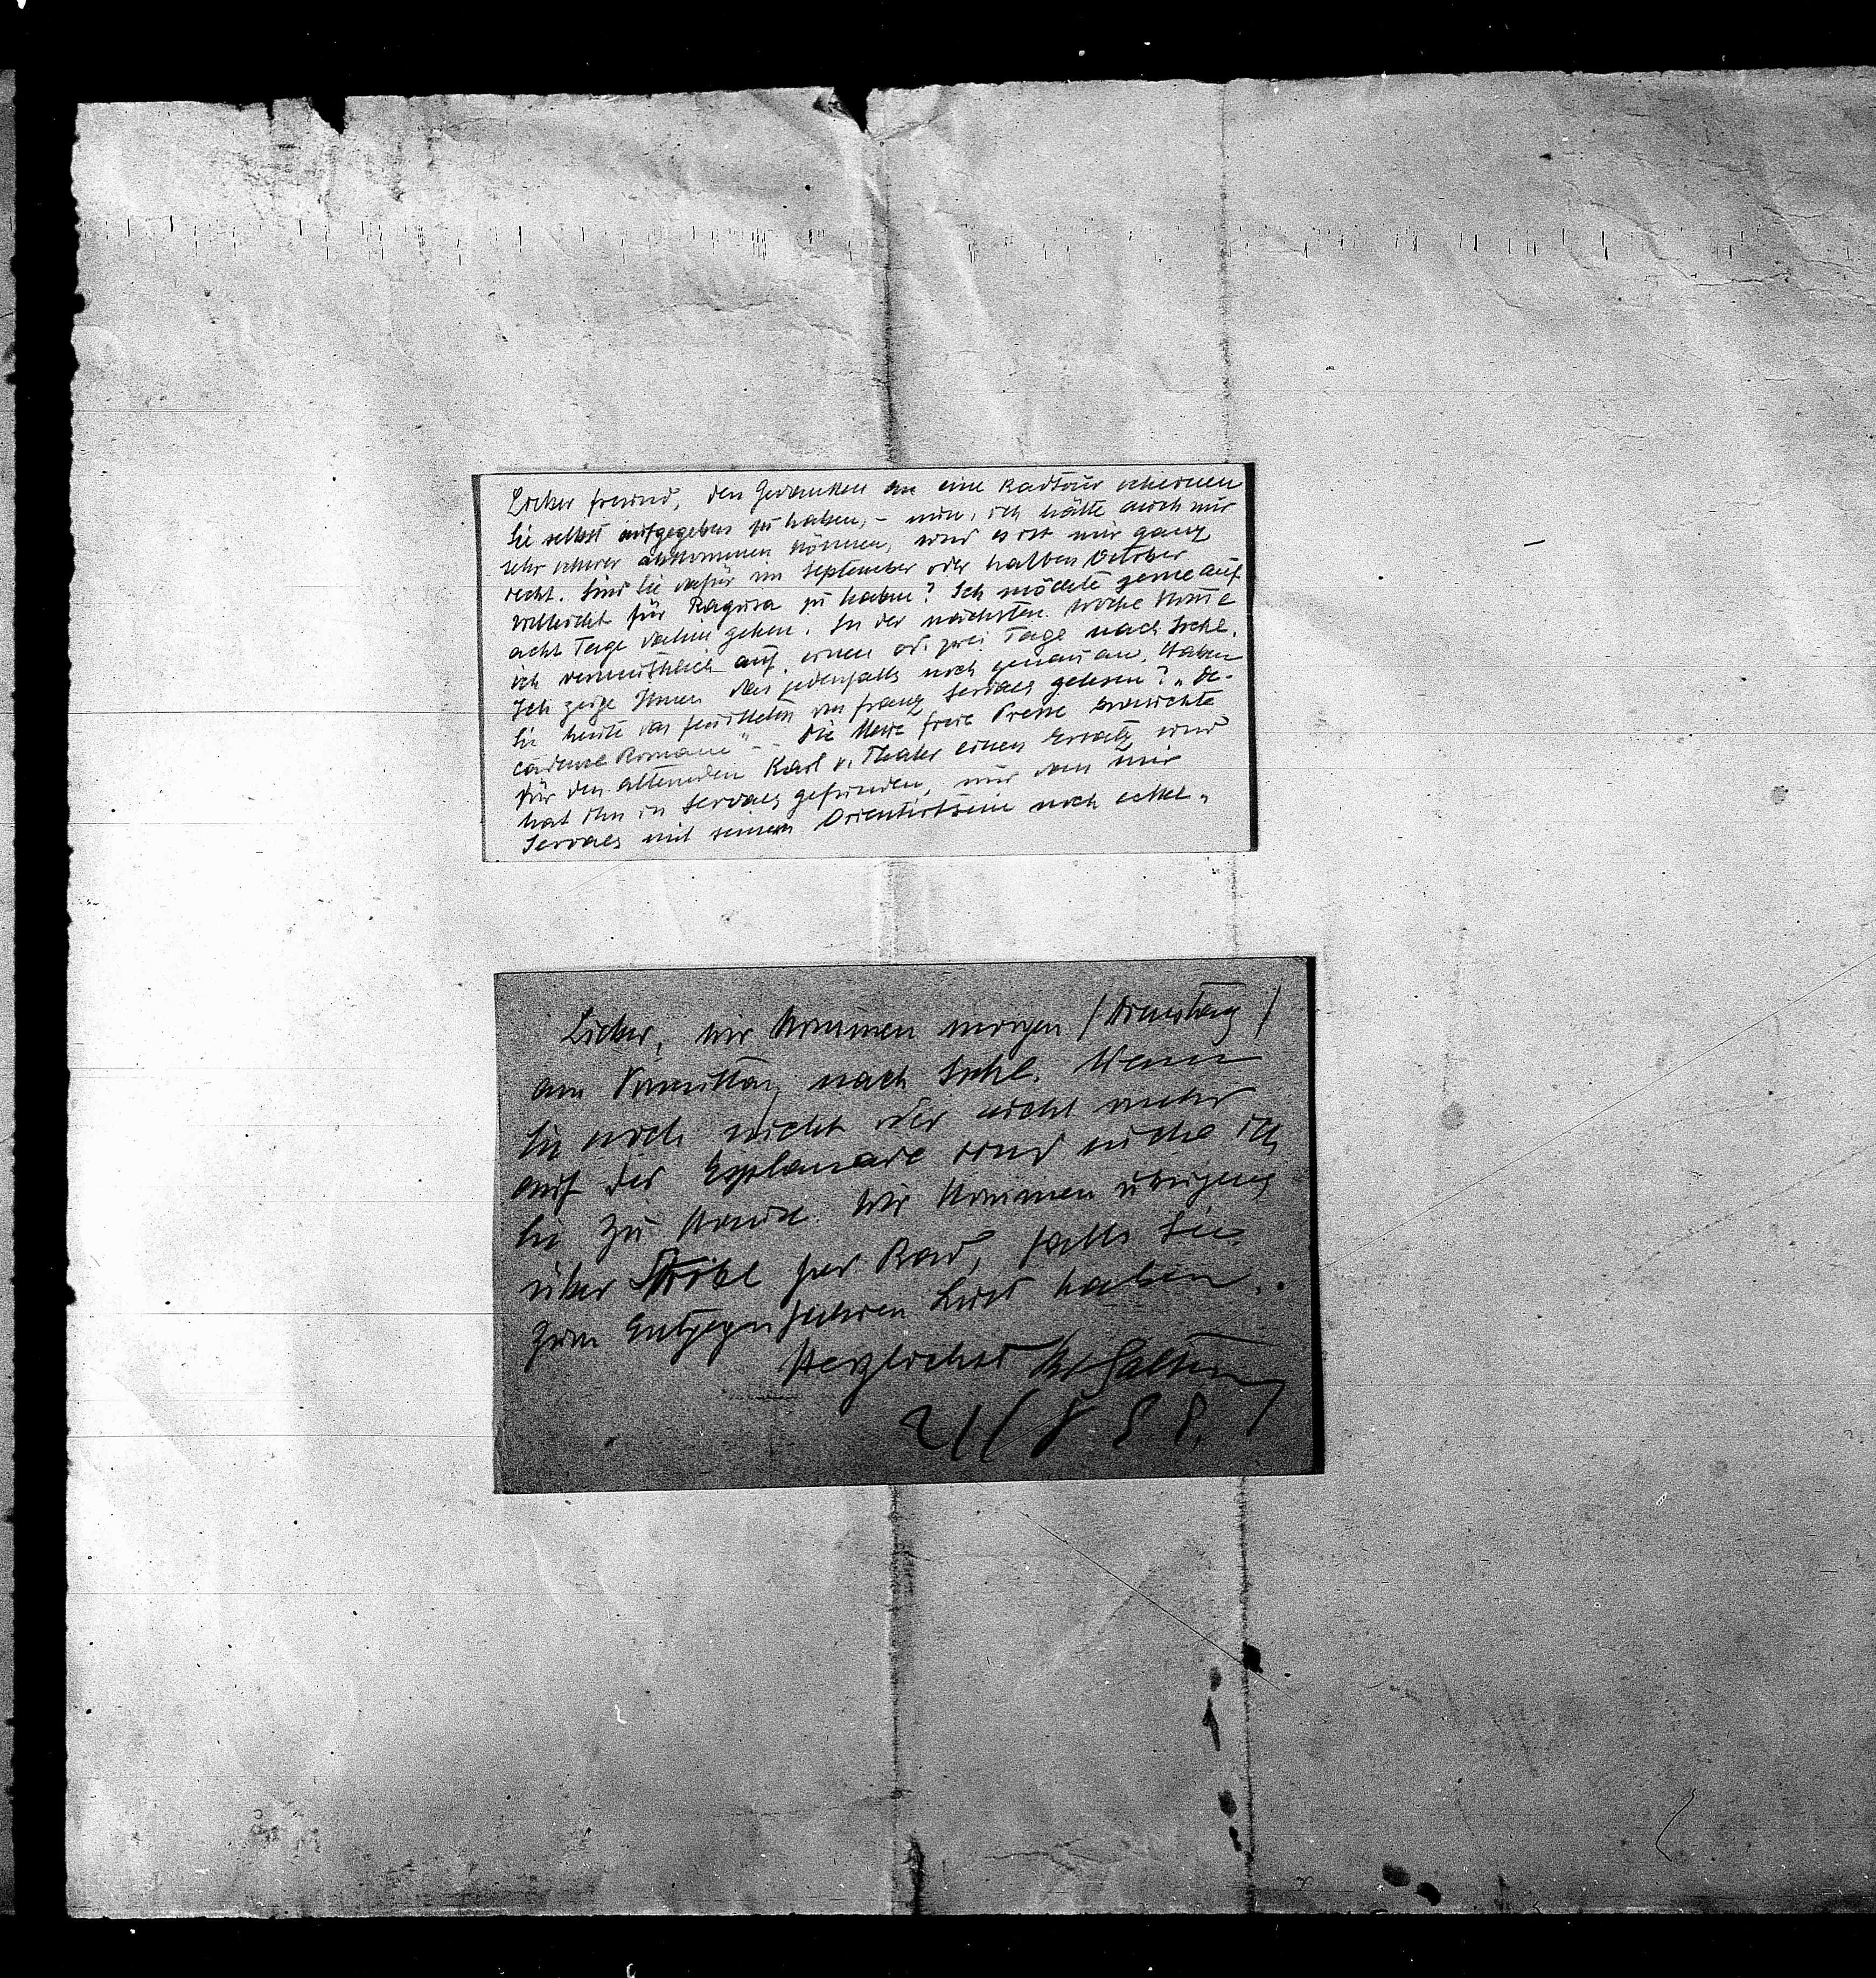 Lieber Freund, den Gedanken an eine Radtour scheinen
Sie selbst aufgegeben zu haben, – nun, ich hätte auch nur
sehr schwer abkommen können, und es ist mir ganz
recht. Sind Sie dafür im September oder halben October
vielleicht für Ragusa zu haben? Ich möchte gerne auf
acht Tage dahin gehen. In der nächsten Woche kome
ich vermuthlich auf einen od. zwei Tage nach Ischl.
Ich zeige Ihnen das jedenfalls noch genau an. Haben
Sie heute das Feuilleton von Franz Servaes gelesen? „De-
cadence Romane“ – Die Neue freie Presse brauchte
für den alternden Karl v. Thaler einen Ersatz und
hat ihn in Servaes gefunden, nur dass mir
Servaes mit seinem Orientirtsein noch ekel-
Lieber, wir kommen morgen / Dienstag /
am Vormittag nach Ischl. Wenn
Sie noch nicht oder nicht mehr
auf der Esplanade sind suche ich
Sie zu Hause. Wir kommen übrigens
über Strobl per Rad, falls Sie
zum Entgegenfahren Lust haben.
Herzlichst Ihr Salten
21/8 98.